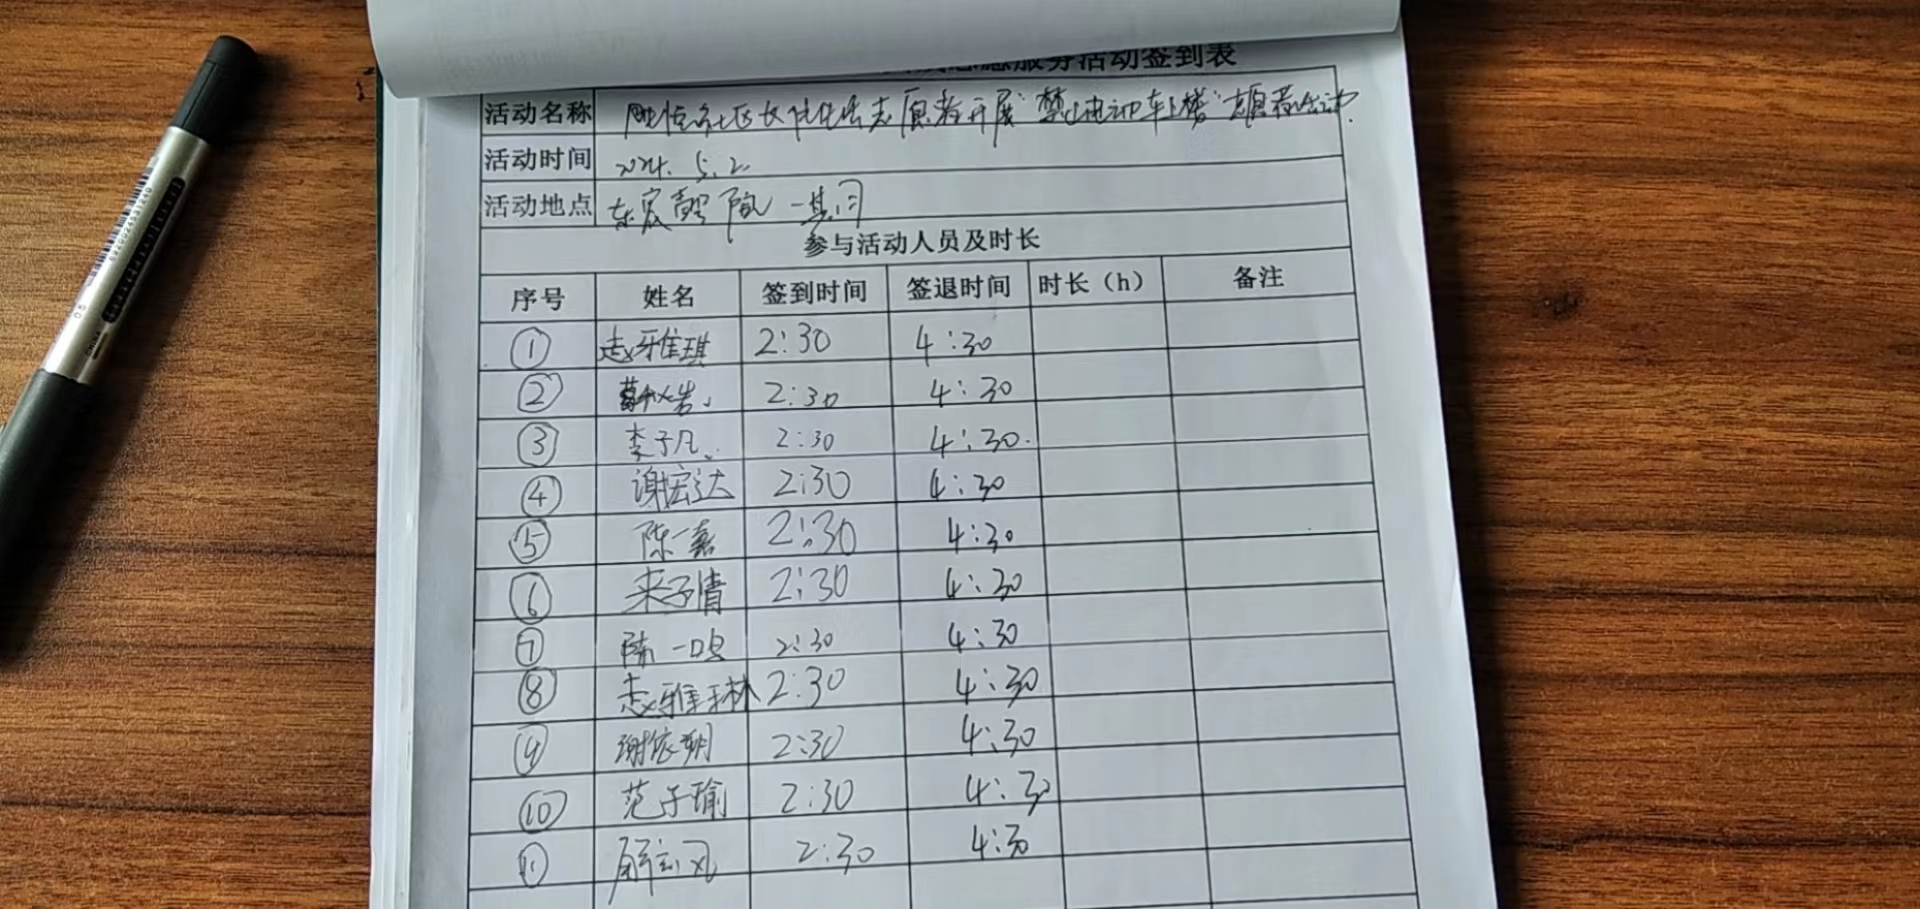 服务活动签到表
活动名称 志愿者开展"禁止电动车上楼"志愿者活动.
活动时间 2024. 5. 2
活动地点 东宸 院 一期
参与活动人员及时长
序号 姓名 签到时间 签退时间 时长（h） 备注
① 赵雅琪 2:30 4:30
② 2:30 4:30
③ 李子凡 2:30 4:30
④ 谢宏达 2:30 4:30
⑤ 陈一嘉 2:30 4:30
⑥ 来子倩 2:30 4:30
⑦ 陈一鸣 2:30 4:30
⑧ 赵雅琳 2:30 4:30
⑨ 谢依朔 2:30 4:30
⑩ 范子瑜 2:30 4:30
⑪ 2:30 4:30